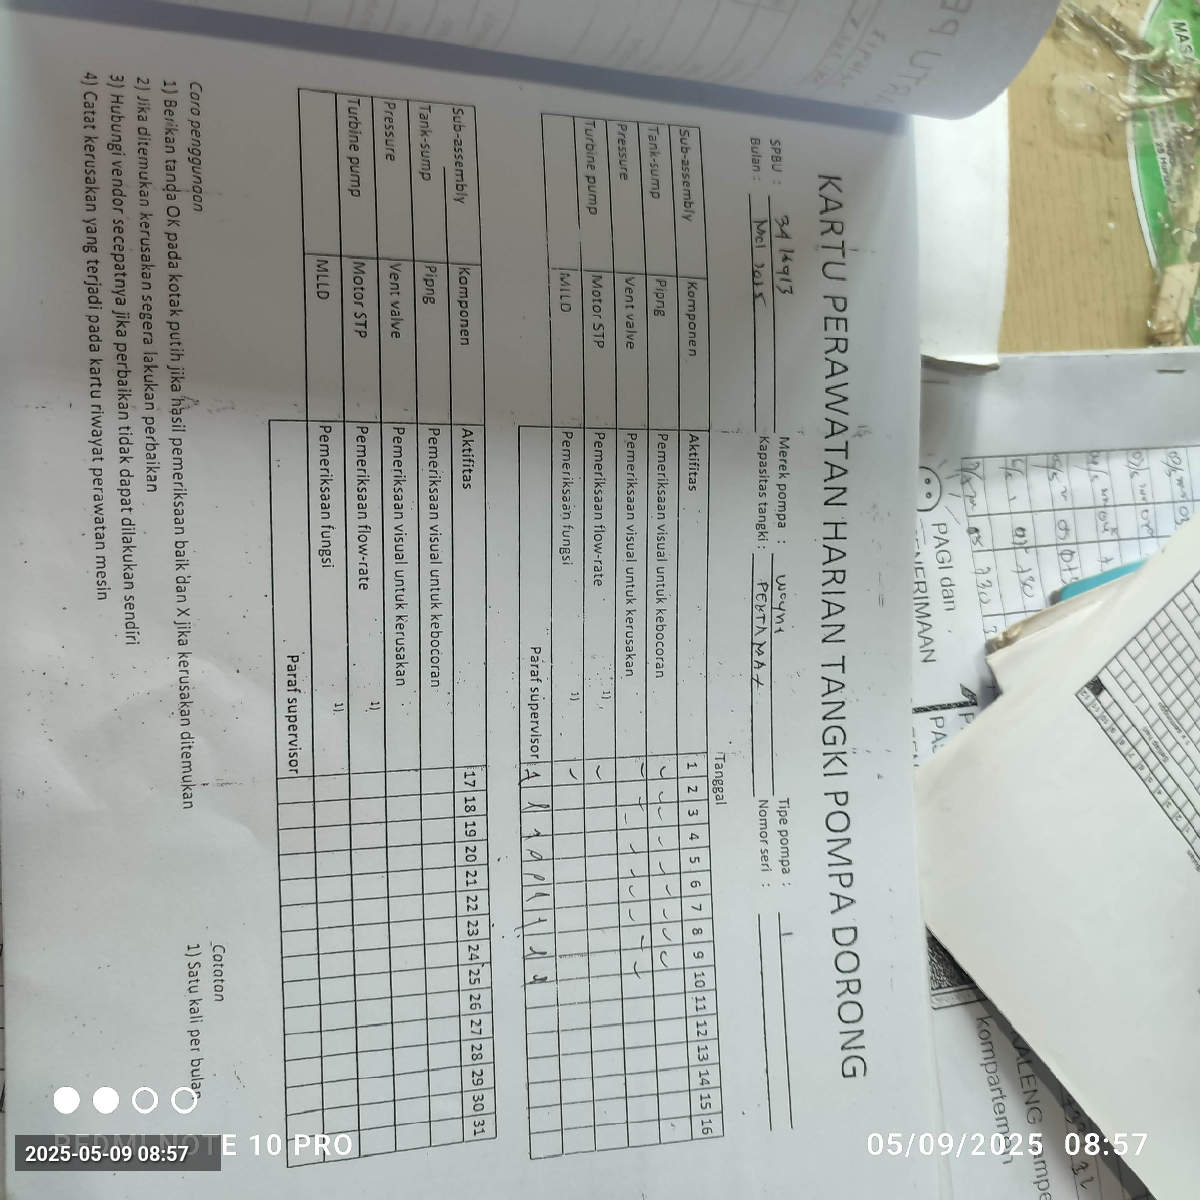 KARTU PERAWATAN HARIAN TANGKI POMPA DORONG
SPBU : 3414913 Merek pompa : Wayne Tipe pompa : 1
Bulan : Mei 2025 Kapasitas tangki : PERTAMAX Nomor seri :
Tanggal
Sub-assembly Komponen Aktifitas 1 2 3 4 5 6 7 8 9 10 11 12 13 14 15 16
Tank-sump Pipng Pemeriksaan visual untuk kebocoran
Pressure Vent valve Pemeriksaan visual untuk kerusakan
Turbine pump Motor STP Pemeriksaan flow-rate 1)
MLLD Pemeriksaan fungsi 1)
Paraf supervisor
Sub-assembly Komponen Aktifitas 17 18 19 20 21 22 23 24 25 26 27 28 29 30 31
Tank-sump Pipng Pemeriksaan visual untuk kebocoran
Pressure Vent valve Pemeriksaan visual untuk kerusakan
Turbine pump Motor STP Pemeriksaan flow-rate 1)
MLLD Pemeriksaan fungsi 1)
Paraf supervisor
Cara penggunaan
1) Berikan tanda OK pada kotak putih jika hasil pemeriksaan baik dan X jika kerusakan ditemukan
2) Jika ditemukan kerusakan segera lakukan perbaikan
3) Hubungi vendor secepatnya jika perbaikan tidak dapat dilakukan sendiri
4) Catat kerusakan yang terjadi pada kartu riwayat perawatan mesin
Catatan
1) Satu kali per bulan
PAGI dan
kompartemen
REDMI NOTE 10 PRO
2025-05-09 08:57
05/09/2025 08:57